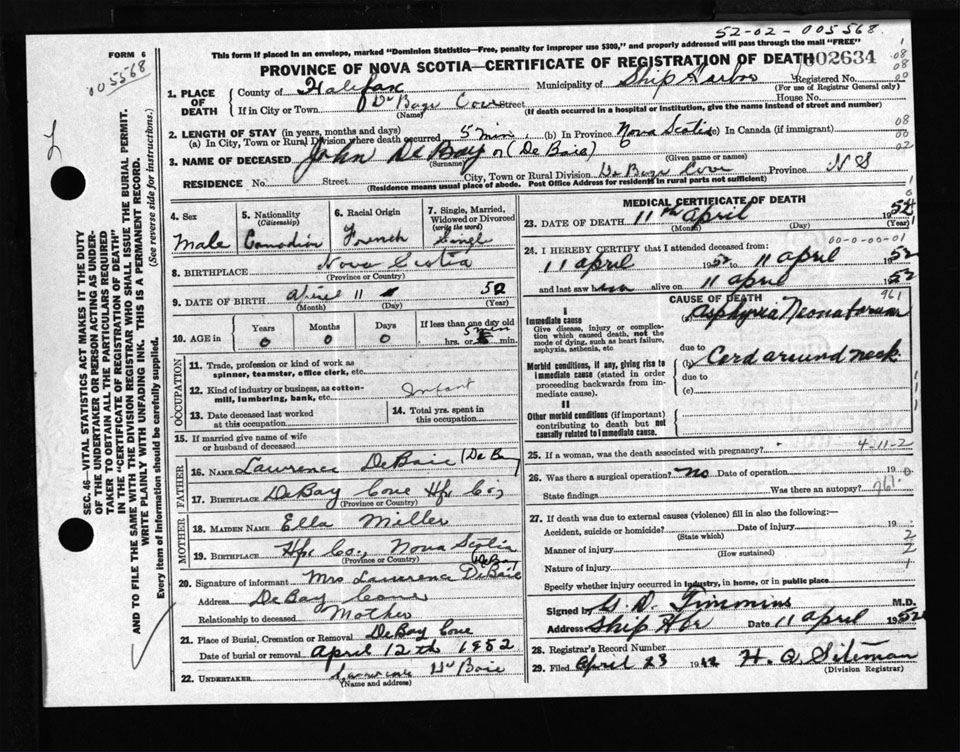 52-02-005568
FORM 6
005568
This form if placed in an envelope, marked "Dominion Statistics—Free, penalty for improper use $300," and properly addressed will pass through the mail "FREE"
PROVINCE OF NOVA SCOTIA—CERTIFICATE OF REGISTRATION OF DEATH
002634
1. PLACE OF DEATH
County of Halifax Municipality of Ship Harbor Registered No.
(For use of Registrar General only)
If in City or Town DeBays Cove Street House No.
(Name) (If death occurred in a hospital or institution, give the name instead of street and number)
2. LENGTH OF STAY (in years, months and days)
(a) In City, Town or Rural Division where death occurred 5 min. (b) In Province Nova Scotia (c) In Canada (if immigrant)
3. NAME OF DECEASED John DeBay or (DeBaie)
(Surname) (Given name or names)
RESIDENCE No. Street City, Town or Rural Division DeBays Cove Province N S
(Residence means usual place of abode. Post Office Address for residents in rural parts not sufficient)
4. Sex
Male
5. Nationality
(Citizenship)
Canadian
6. Racial Origin
French
7. Single, Married, Widowed or Divorced
(write the word)
Single
8. BIRTHPLACE Nova Scotia
(Province or Country)
9. DATE OF BIRTH April 11 52
(Month) (Day) (Year)
10. AGE in
Years Months Days If less than one day old
0 0 0 hrs. or 5 min.
OCCUPATION
11. Trade, profession or kind of work as spinner, teamster, office clerk, etc.
12. Kind of industry or business, as cotton-mill, lumbering, bank, etc. Infant
13. Date deceased last worked at this occupation
14. Total yrs. spent in this occupation
15. If married give name of wife or husband of deceased
FATHER
16. NAME Lawrence DeBaie (DeBay
17. BIRTHPLACE DeBay Cove Hfx Co,
MOTHER
18. MAIDEN NAME Ella Miller
19. BIRTHPLACE Hfx Co., Nova Scotia
(Province or Country)
20. Signature of informant Mrs Lawrence DeBaie
Address DeBay Cove
Relationship to deceased Mother
21. Place of Burial, Cremation or Removal DeBay Cove
Date of burial or removal April 12th 1952
22. UNDERTAKER Lawrence DeBaie
(Name and address)
MEDICAL CERTIFICATE OF DEATH
23. DATE OF DEATH 11th April 1952
(Month) (Day) (Year)
00-0-00-01
24. I HEREBY CERTIFY that I attended deceased from:
11 April 1952 to 11 April 1952
and last saw him alive on 11 April 1952
CAUSE OF DEATH
761
I
Immediate cause
Give disease, injury or complication which caused death, not the mode of dying, such as heart failure, asphyxia, asthenia, etc
(a) Asphyxia Neonatorum
due to
Morbid conditions, if any, giving rise to immediate cause (stated in order proceeding backwards from immediate cause).
(b) Cord around neck
due to
(c)
II
Other morbid conditions (if important) contributing to death but not causally related to immediate cause.
25. If a woman, was the death associated with pregnancy?
4-11-2
26. Was there a surgical operation? No Date of operation 19
State findings Was there an autopsy?
761.
27. If death was due to external causes (violence) fill in also the following:—
Accident, suicide or homicide? Date of injury 19
(State which)
Manner of injury
(How sustained)
Nature of injury
Specify whether injury occurred in industry, in home, or in public place
Signed by G. D. Timmins M.D.
Address Ship Hbr Date 11 April 1952
28. Registrar's Record Number
29. Filed April 23 19 H. Q. Siteman
(Division Registrar)
SEC. 46—VITAL STATISTICS ACT MAKES IT THE DUTY
OF THE UNDERTAKER OR PERSON ACTING AS UNDERTAKER TO OBTAIN ALL THE PARTICULARS REQUIRED
IN THE "CERTIFICATE OF REGISTRATION OF DEATH"
AND TO FILE THE SAME WITH THE DIVISION REGISTRAR WHO SHALL ISSUE THE BURIAL PERMIT.
WRITE PLAINLY WITH UNFADING INK. THIS IS A PERMANENT RECORD.
Every item of information should be carefully supplied. (See reverse side for instructions.)